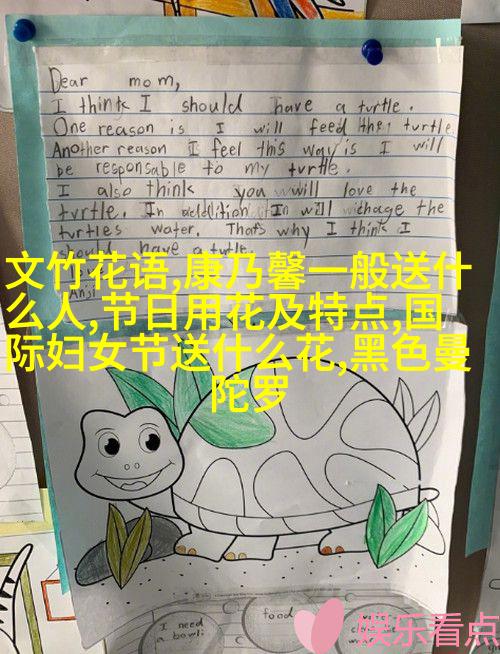 Dear mom,
I think I should have a turtle.
One reason is I will feed the turtle.
Another reason I feel this way is I will
be responsable to my turtle.
I also think you will love the
turtle. In addition In will chage the
turtles water. Thats why I think I
should have a turtle.
Anji
文竹花语,康乃馨一般送什
么人,节日用花及特点,国
际妇女节送什么花,黑色曼
陀罗
I need
a bowl
food
娱乐看点